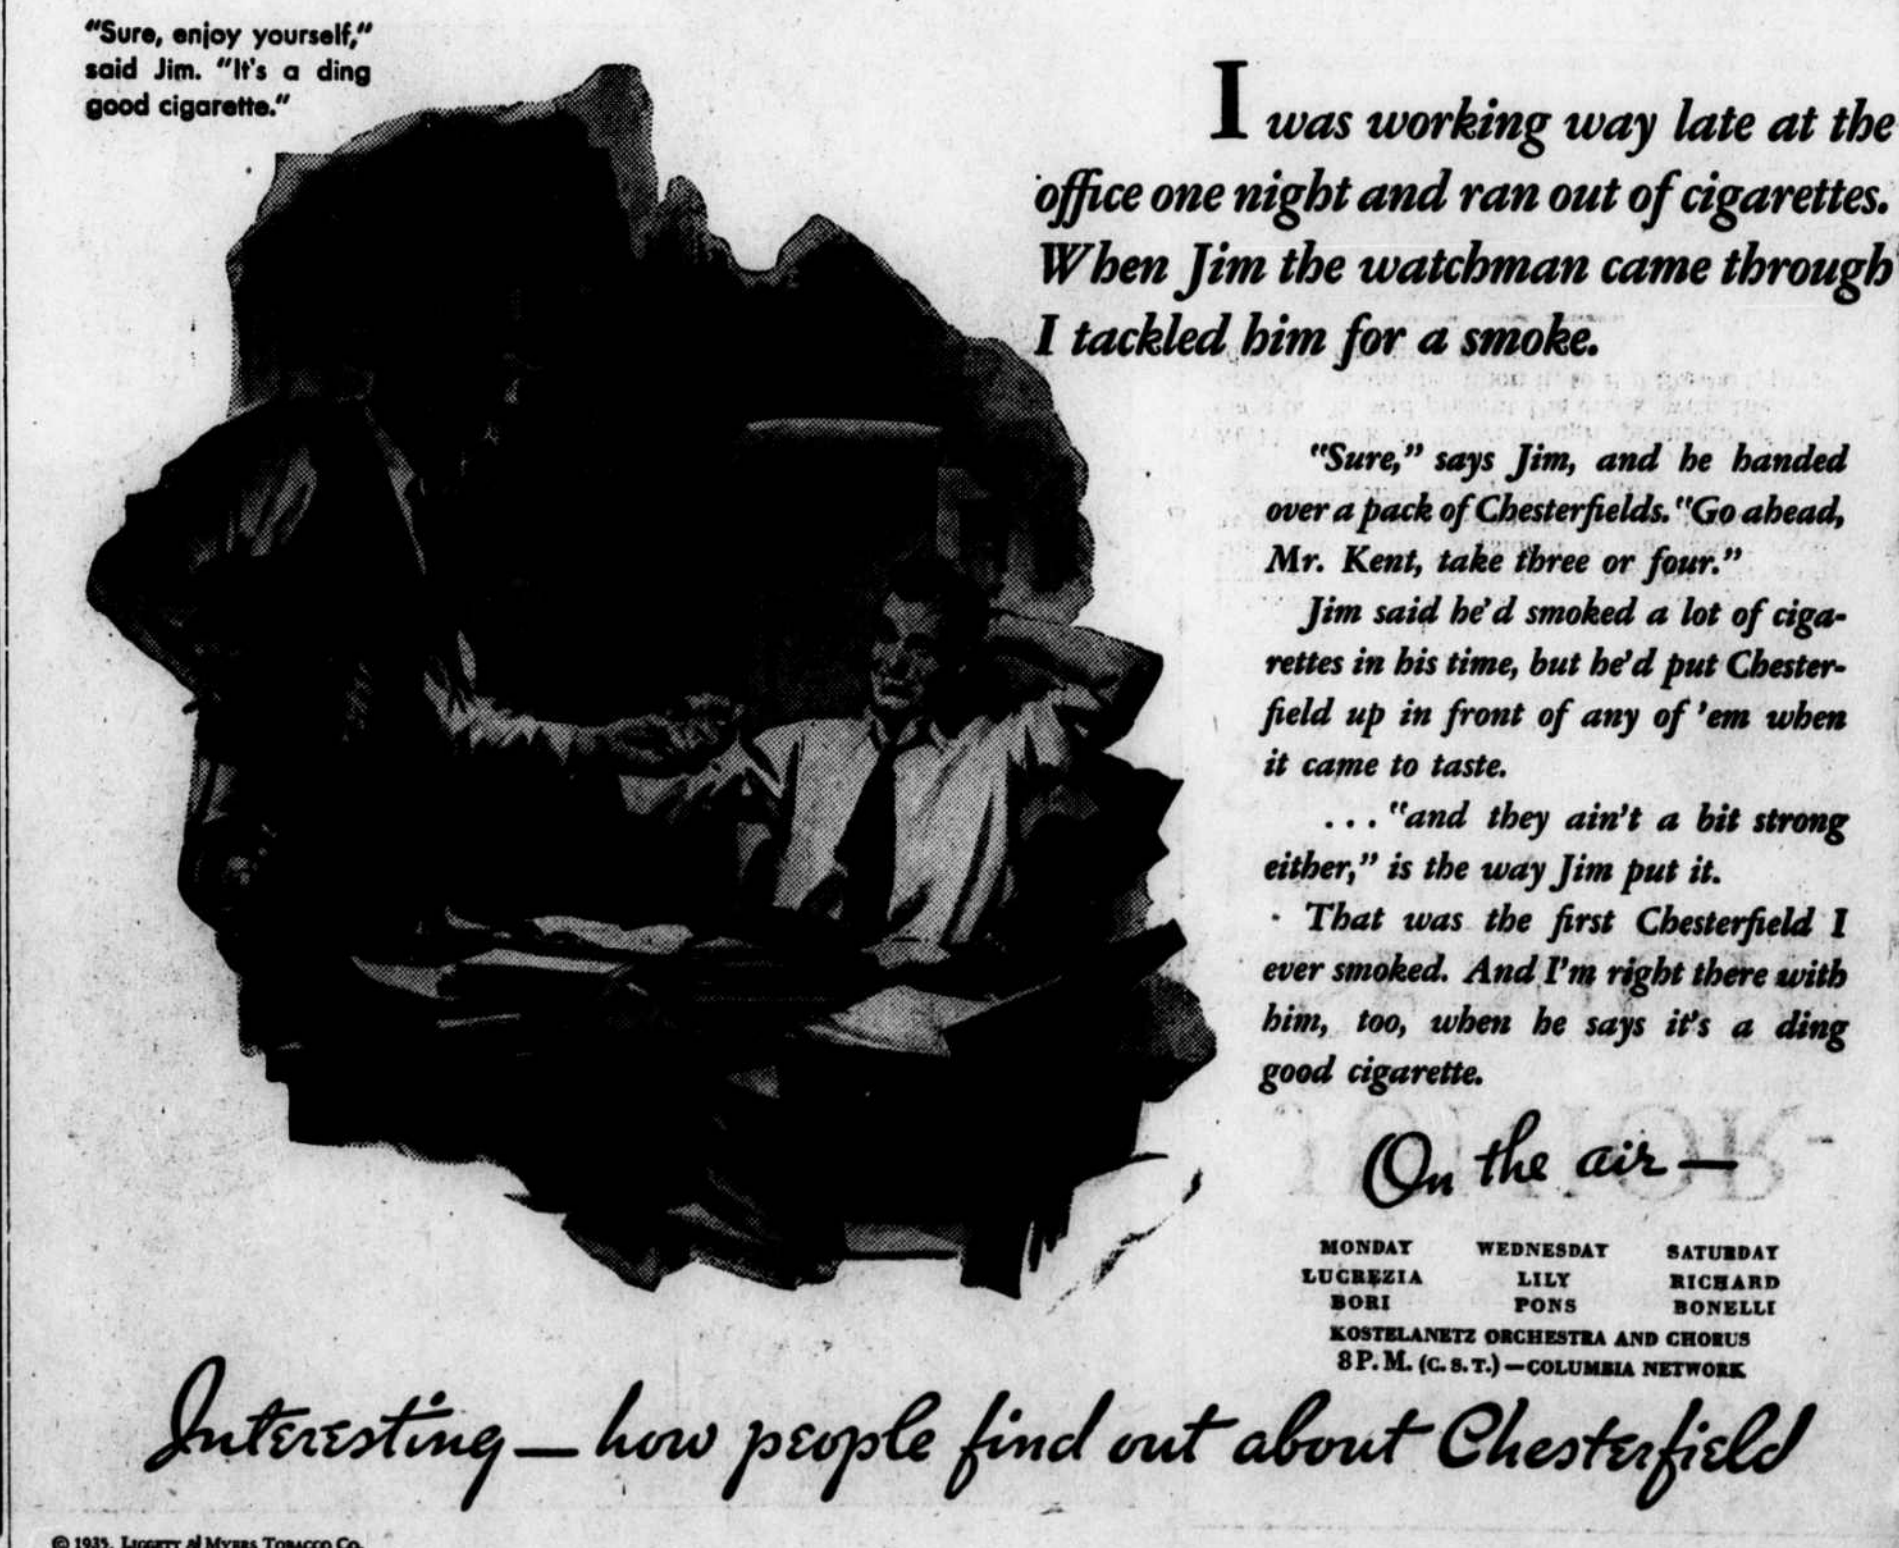 "Sure, enjoy yourself,"
said Jim. "It's a ding
good cigarette."
I was working way late at the
office one night and ran out of cigarettes.
When Jim the watchman came through
I tackled him for a smoke.
"Sure," says Jim, and he handed
over a pack of Chesterfields. "Go ahead,
Mr. Kent, take three or four."
Jim said he'd smoked a lot of ciga-
rettes in his time, but he'd put Chester-
field up in front of any of 'em when
it came to taste.
..."and they ain't a bit strong
either," is the way Jim put it.
That was the first Chesterfield I
ever smoked. And I'm right there with
him, too, when he says it's a ding
good cigarette.
On the air—
MONDAY WEDNESDAY SATURDAY
LUCREZIA LILY RICHARD
BORI PONS BONELLI
KOSTELANETZ ORCHESTRA AND CHORUS
8 P. M. (C. S. T.)—COLUMBIA NETWORK
Interesting—how people find out about Chesterfield
© 1935, LIGGETT & MYERS TOBACCO CO.